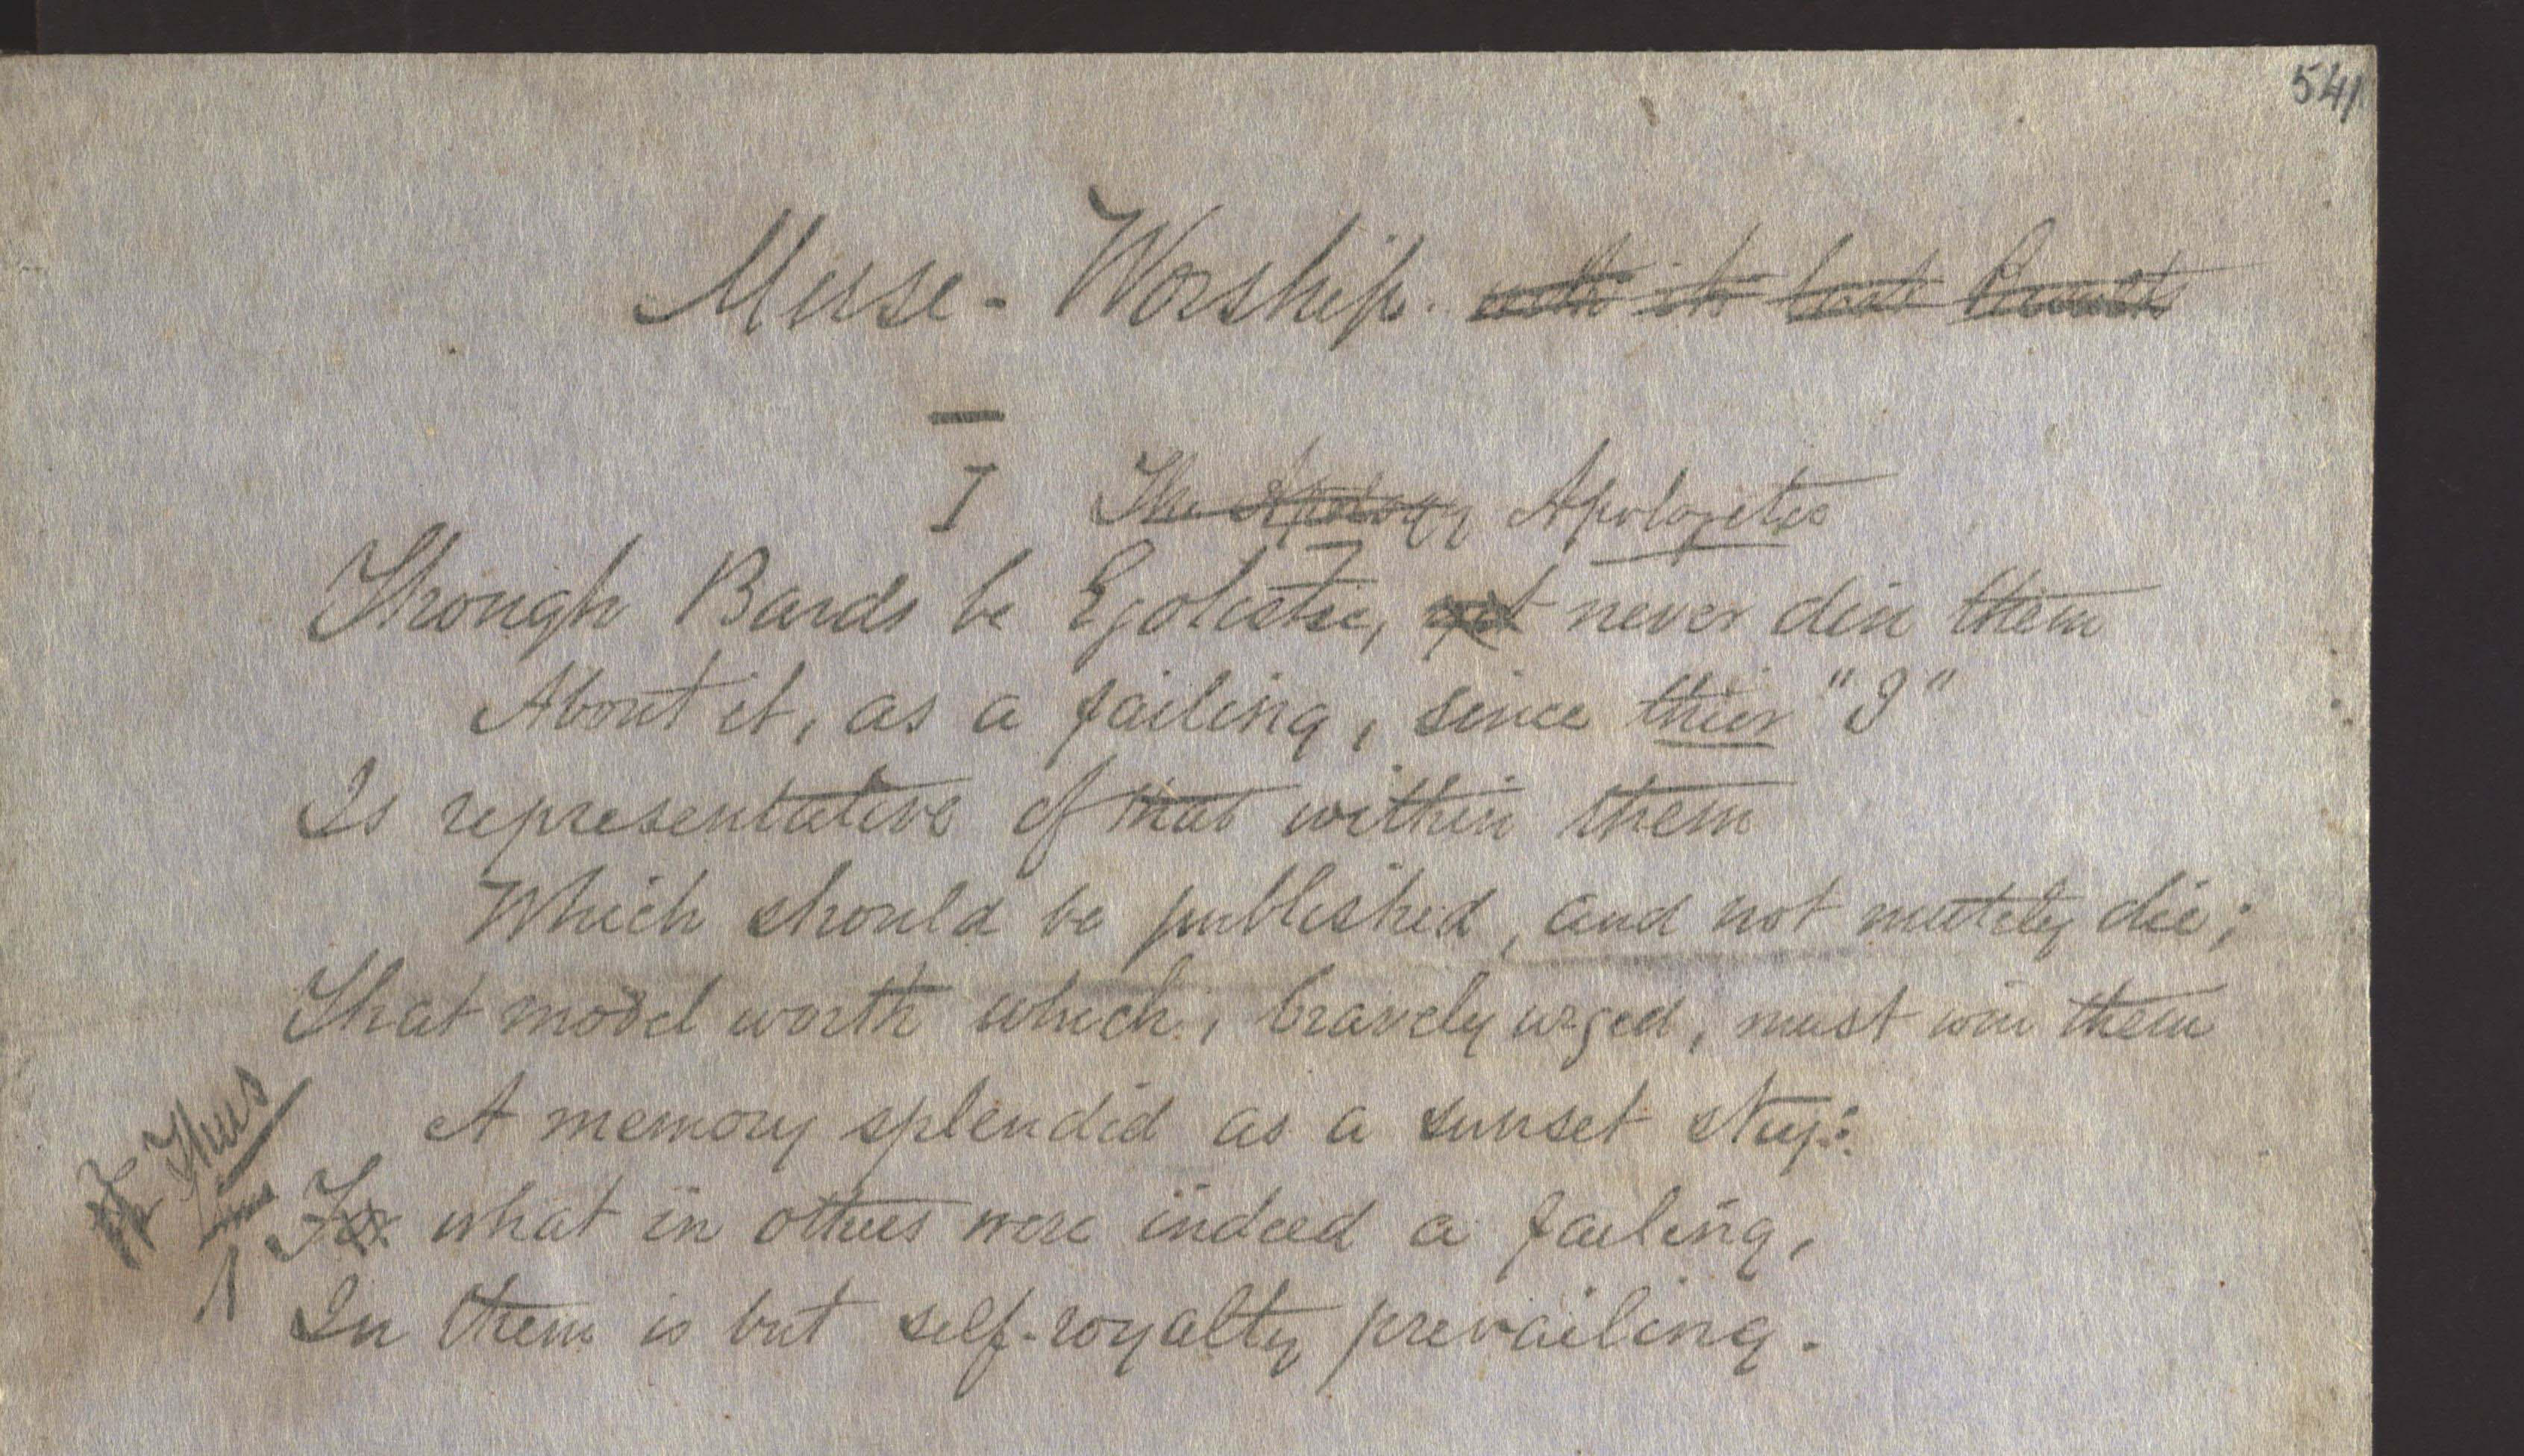 541
Muse-Worship.
I The Apology Apologetes
Though Bards be Egotistic, yet never din them
About it, as a failing, since thier "I"
Is representative of that within them
Which should be published, and not mutely die;
That model worth which, bravely urged, must win them
A memory splendid as a sunset sky:
Thus
For what in others were indeed a failing,
In them is but self-royalty prevailing.